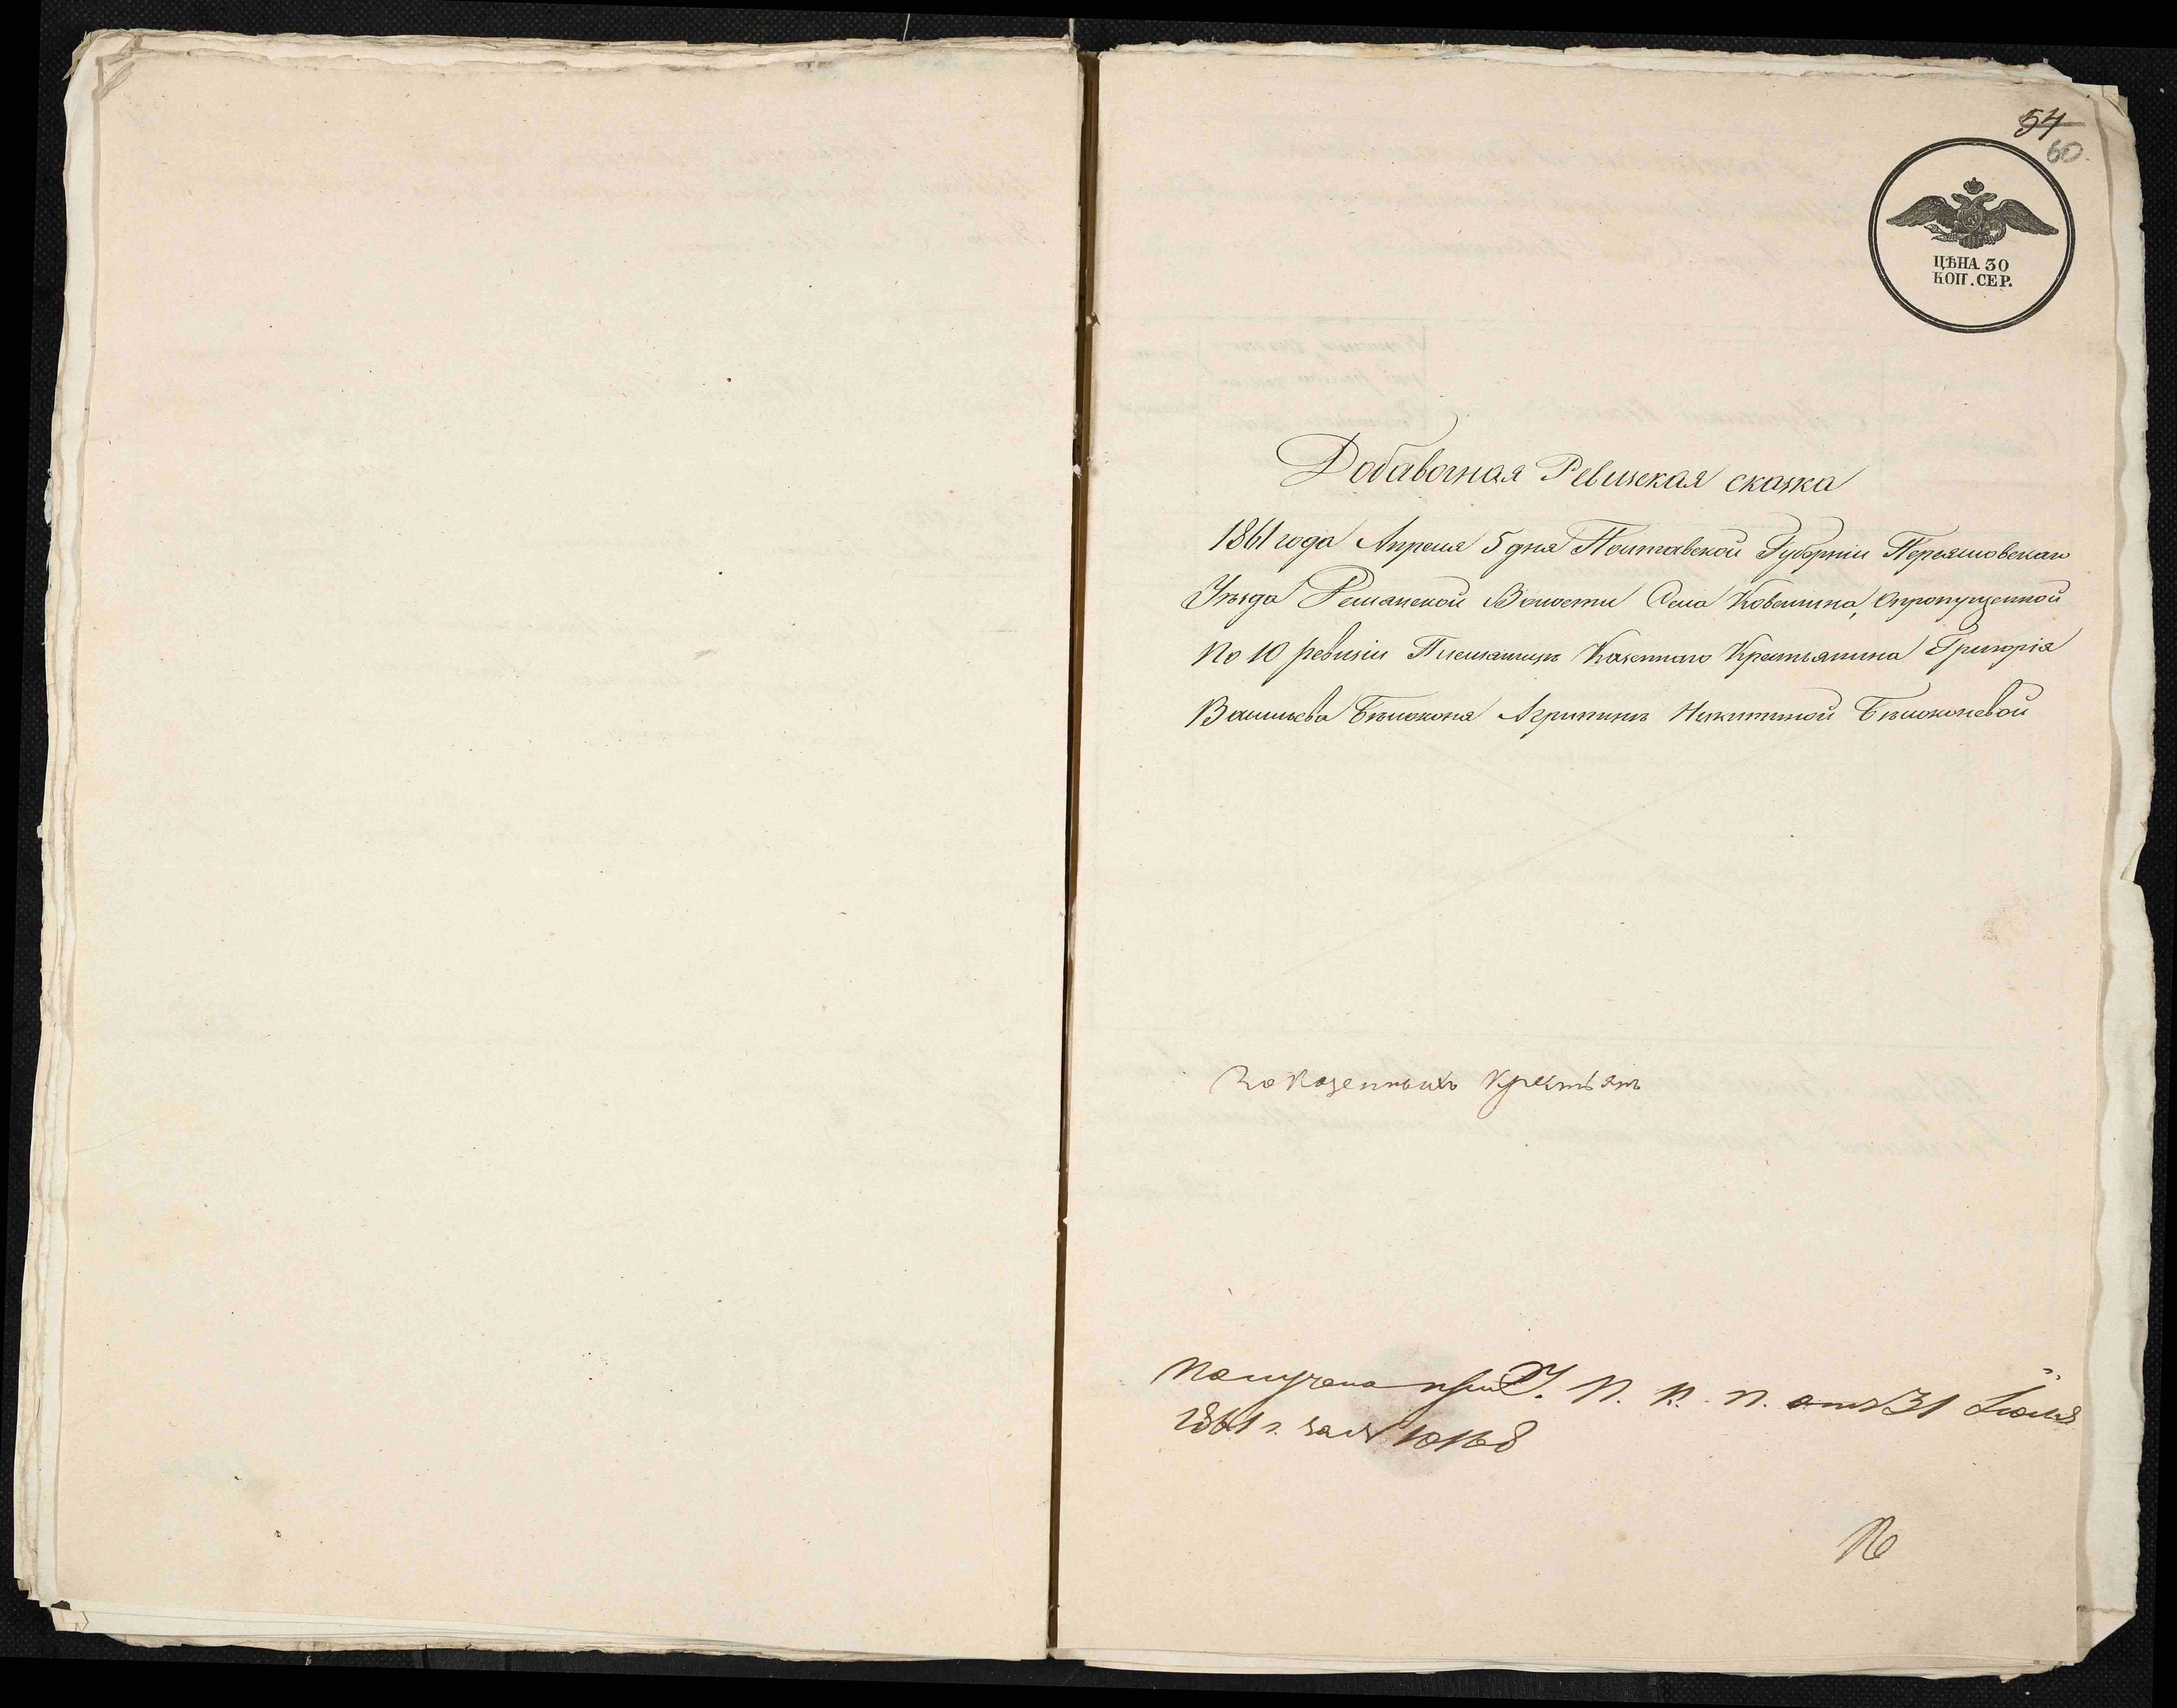 54
60.
ЦѢНА 30
КОП. СЕР.
Добавочная Ревизская сказка
1861 года Апреля 5 дня Полтавской Губерніи Переяславскаго
Уѣзда Волости Села Ковалина, Опропущенной
По 10 ревизіи Племянницѣ Казеннаго Крестьянина Григорія
Васильева Бѣлоконя Агрипинѣ Никитиной Бѣлоконевой
Казенныхъ Крестьянъ
Получена при У. П. К. П. отъ 31 Іюля
1861 г. за № 10168